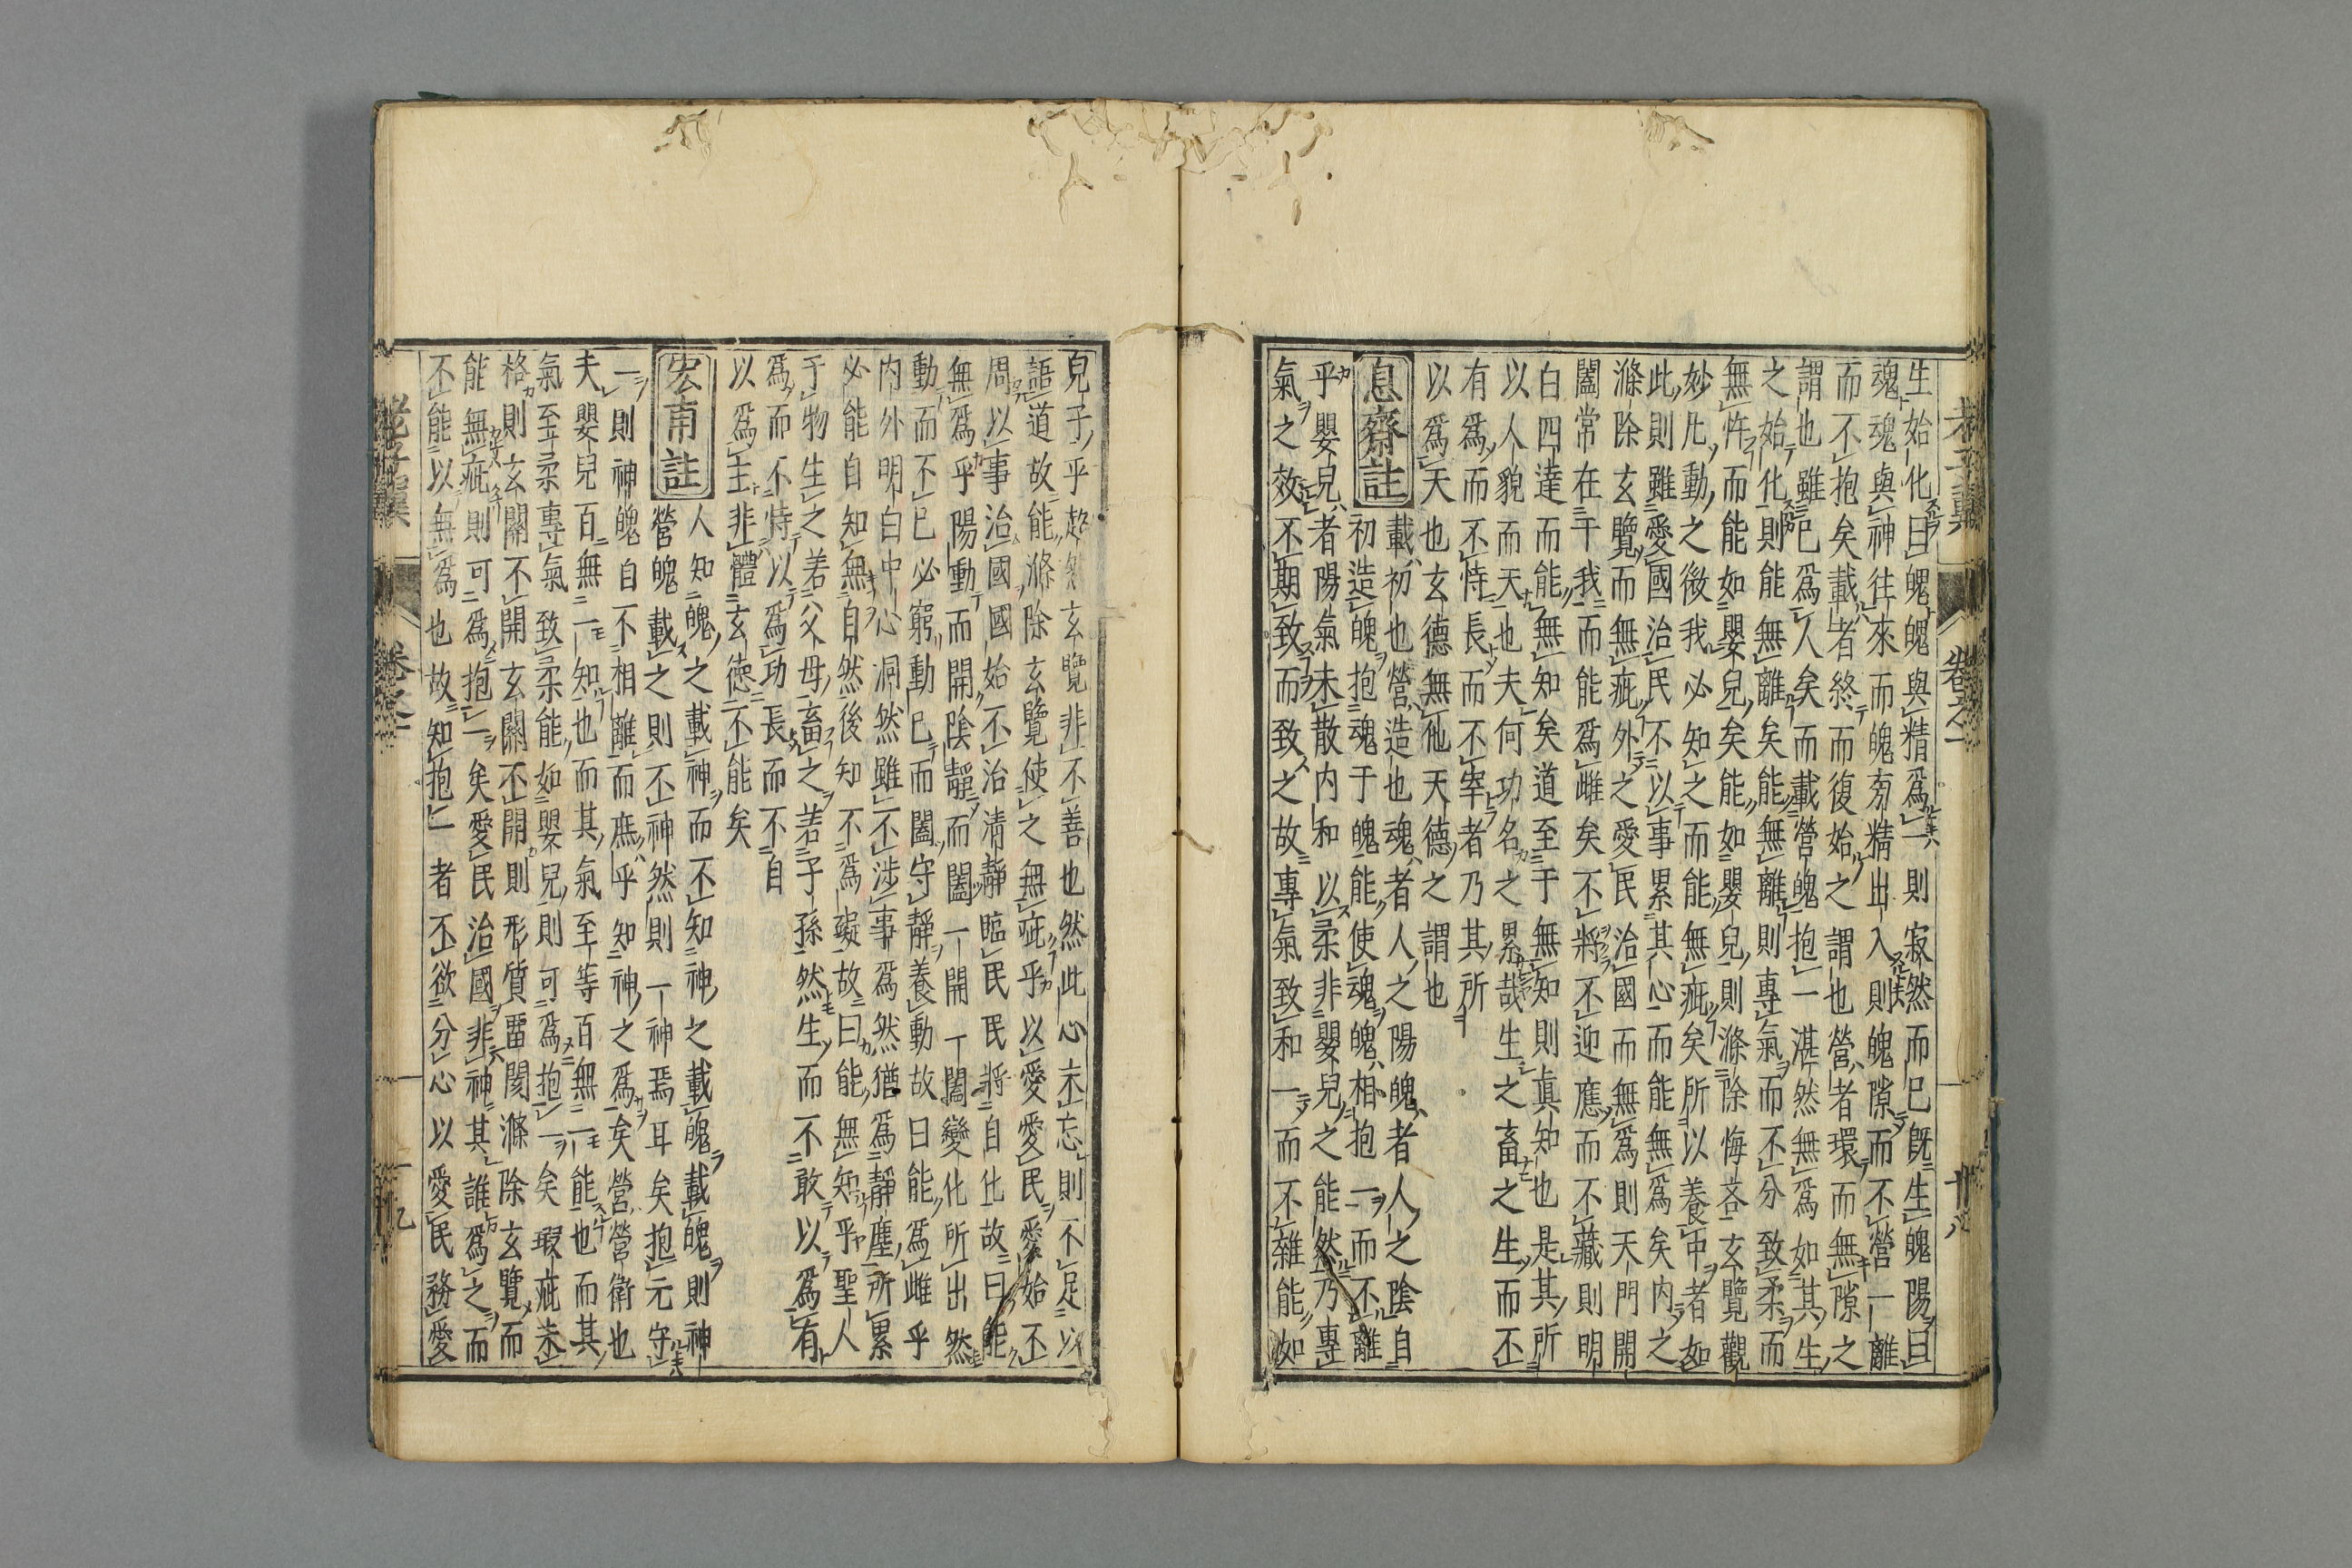 生始化曰魄魄與精爲一則寂然而已旣生魄陽曰
魂魂與神往來而魄旁精出入則魄隙而不營一離
而不抱矣載者終而復始之謂也營者環而無隙之
謂也雖已爲人矣而載營魄抱一湛然無爲如其生
之始化則能無離矣能無離則專氣而不分致柔而
無忤而能如嬰兒矣能如嬰兒則滌除悔吝玄覽觀
妙凡動之微我必知之而能無疵矣所以養中者如
此則雖愛國治民不以事累其心而能無爲矣内之
滌除玄覽而無疵外之愛民治國而無爲則天門開
闔常在于我而能爲雌矣不將不迎應而不藏則明
白四達而能無知矣道至于無知則眞知也是其所
以人貌而天也夫何功名之累哉生之畜之生而不
有爲而不恃長而不宰者乃其所
以爲天也玄德無他天德之謂也
息齋註
載初也營造也魂者人之陽魄者人之陰自
初造魄抱魂于魄能使魂魄相抱一而不離
乎嬰兒者陽氣未散内和以柔非嬰兒之能然乃專
氣之效不期致而致之故專氣致和一而不雜能如
老子翼
卷之一
十八
兒子乎玄覽非不善也然此心不忘則不足以
語道故能滌除玄覽使之無疵乎以愛愛民愛始不
周以事治國國始不治清靜臨民民將自化故曰能
無爲乎陽動而開陰靜而闔一開一闔變化所出然
動而不已必窮動已而闔守靜養動故曰能爲雌乎
内外明白中心洞然雖不涉事爲然猶爲靜塵所累
必能自知無自然後知不爲礙故曰能無知乎聖人
于物生之若父母畜之若子孫然生而不敢以爲有
爲而不恃以爲功長而不自
以爲主非體玄德不能矣
宏甫註
人知魄之載神而不知神之載魄載魄則神
營魄載之則不神然則一神焉耳矣抱元守
一則神魄自不相離而庶乎知神之爲矣營營衛也
夫嬰兒百無一知也而其氣至等百無一能也而其
氣至柔專氣致柔能如嬰兒則可爲抱一矣瑕疵未
格則玄關不開玄關不開則形質畱閡滌除玄覽而
能無疵則可爲抱一矣愛民治國非神其誰爲之而
不能以無爲也故知抱一者不欲分心以愛民務愛
老子翼
卷之一
十九